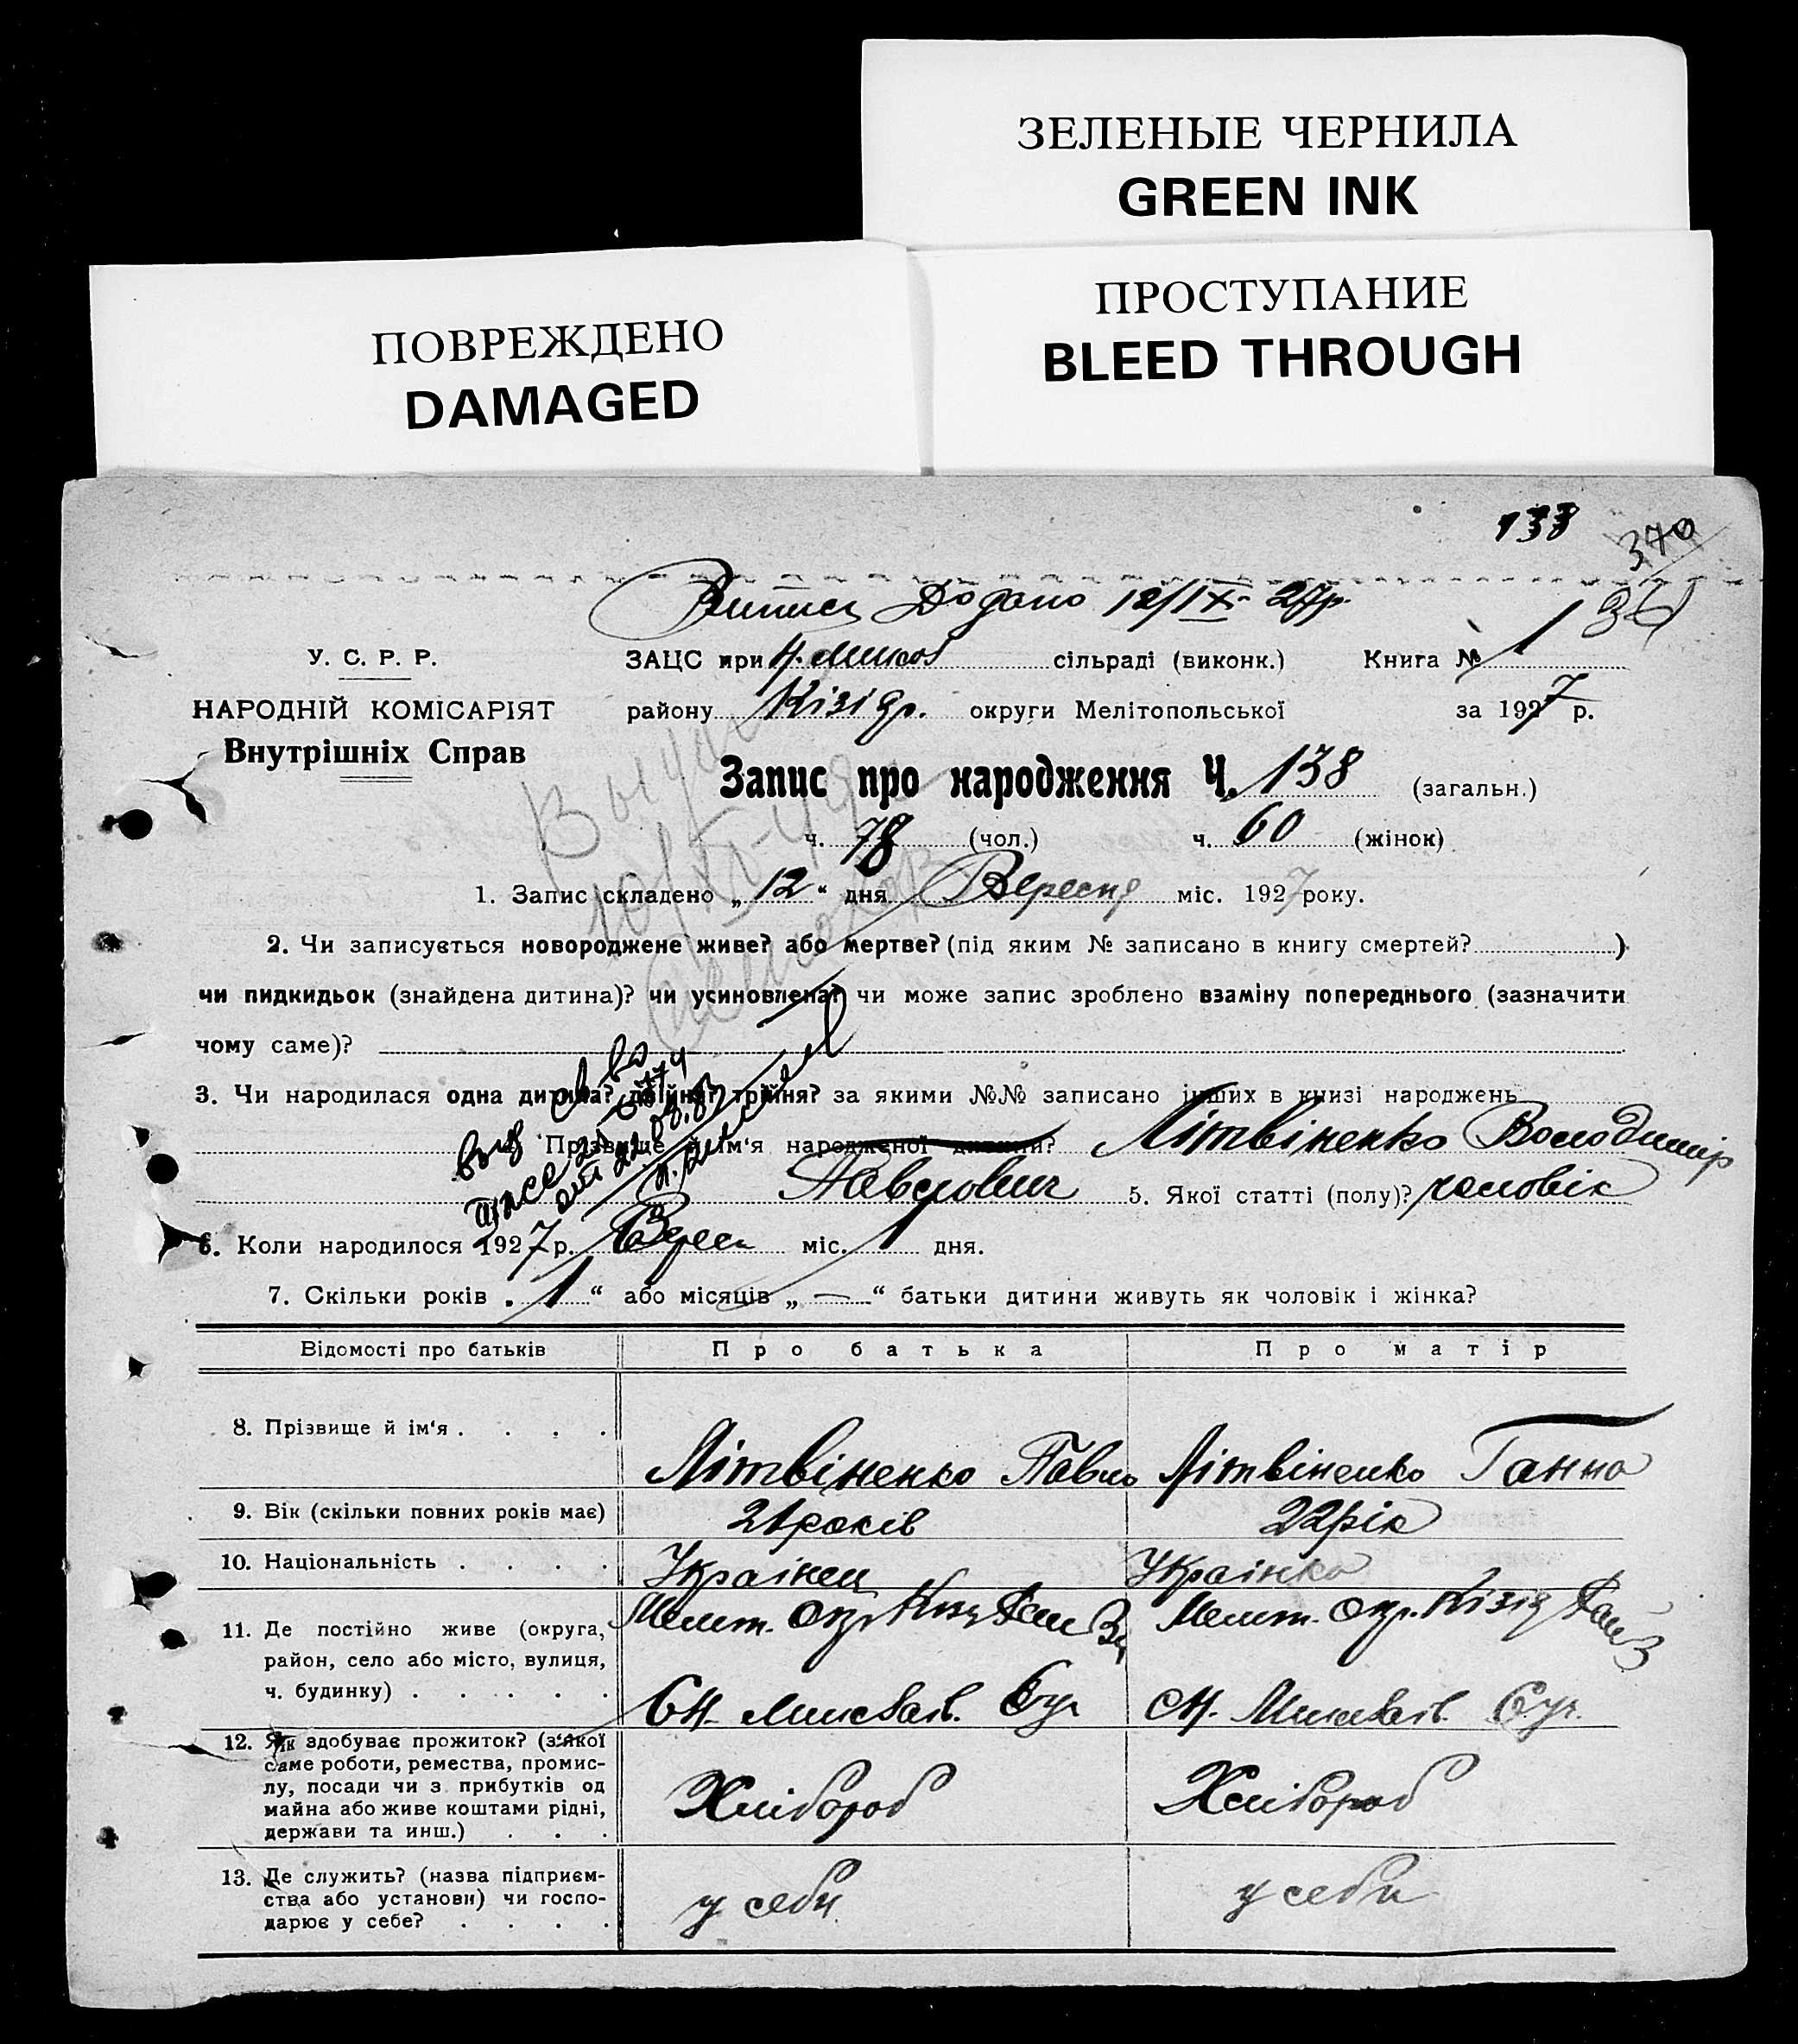 ЗЕЛЕНЫЕ ЧЕРНИЛА
GREEN INK
ПОВРЕЖДЕНО
DAMAGED
ПРОСТУПАНИЕ
BLEED THROUGH
138
370
Витяг Додано 12/IX-27р.
36
У. С. Р. Р.
ЗАЦС при Н. Микол сільраді (виконк.) Книга № 1
НАРОДНІЙ КОМІСАРІЯТ
району Кізіяр. округи Мелітопольської за 1927 р.
Внутрішніх Справ
Запис про народження Ч. 138 (загальн.)
ч. 78 (чол.) ч. 60 (жінок)
1. Запис складено „12“ дня Вересня міс. 1927 року.
2. Чи записується новороджене живе? або мертве? (під яким № записано в книгу смертей? )
чи пидкидьок (знайдена дитина)? чи усиновлена? чи може запис зроблено взаміну попереднього (зазначити
чому саме)?
3. Чи народилася одна дитина? двійня? трійня? за якими №№ записано інших в книзі народжень
Прізвище й ім'я народженої дитини? Літвіненко Володимір
Павлович 5. Якої статті (полу)? чоловік
6. Коли народилося 1927 р. Верес міс. 1 дня.
7. Скільки років „1“ або місяців „—“ батьки дитини живуть як чоловік і жінка?
Відомості про батьків Про батька Про матір
8. Прізвище й ім'я . . . . Літвіненко Павло Літвіненко Ганна
9. Вік (скільки повних років має) 21 років 22 рік
10. Національність . . . . Українец Українка
11. Де постійно живе (округа,
район, село або місто, вулиця,
ч. будинку) . . . . .
Мелит. Окр.
Мелит. Окр. Кізія
12. Як здобуває прожиток? (з якої
саме роботи, ремества, промис-
лу, посади чи з прибутків од
майна або живе коштами рідні,
держави та инш.) . . .
Хлібороб Хлібороб
13. Де служить? (назва підприєм-
ства або установи) чи госпо-
дарює у себе? . . . .
у себи у себи